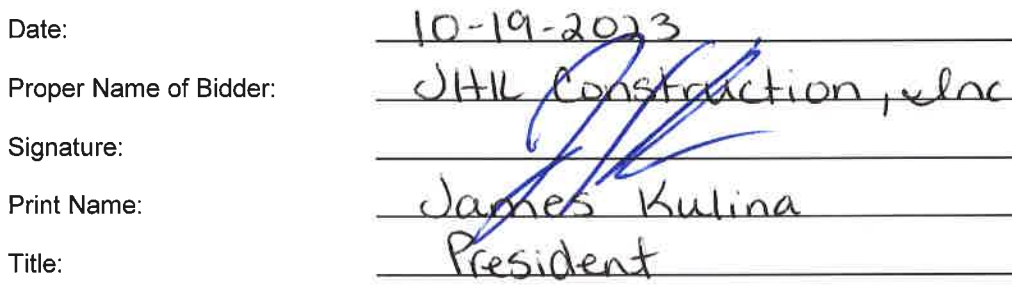 Date: 10-19-2023
Proper Name of Bidder: JHIL Construction, Inc
Signature:
Print Name: James Kulina
Title: President